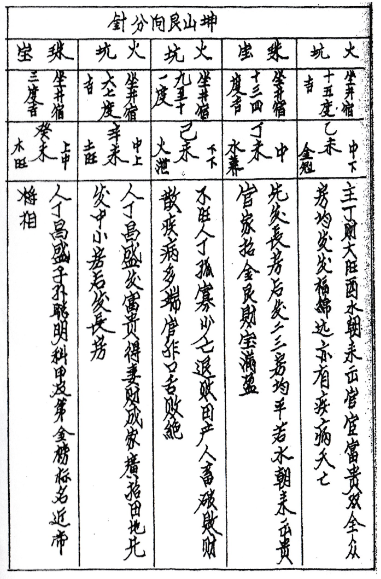 坤山艮向分針
火坑
坐井宿
十五度
吉
乙未
中下
金剋
主丁財大旺酉水朝来正官官富貴双全众
房均发发福綿远亦有疾病夭亡
珠宝
坐井宿
十三四
度吉
丁未
中
水養
先发長房后发二三房均平若水朝来正貴
官家招金艮財宝滿盈
火坑
坐井宿
九至十
一度
己未
下下
火泄
不旺人丁孤寡少亡退败田产人畜破敗財
散疾病多端官非口舌败絶
火坑
坐井宿
六七度
吉
辛未
中上
土旺
人丁昌盛发富貴得妻財成家廣招田地先
发中小房后发長房
珠宝
坐井宿
三度吉
癸未
上中
木旺
人丁昌盛子孙聪明科甲及第金榜标名近帝
将相